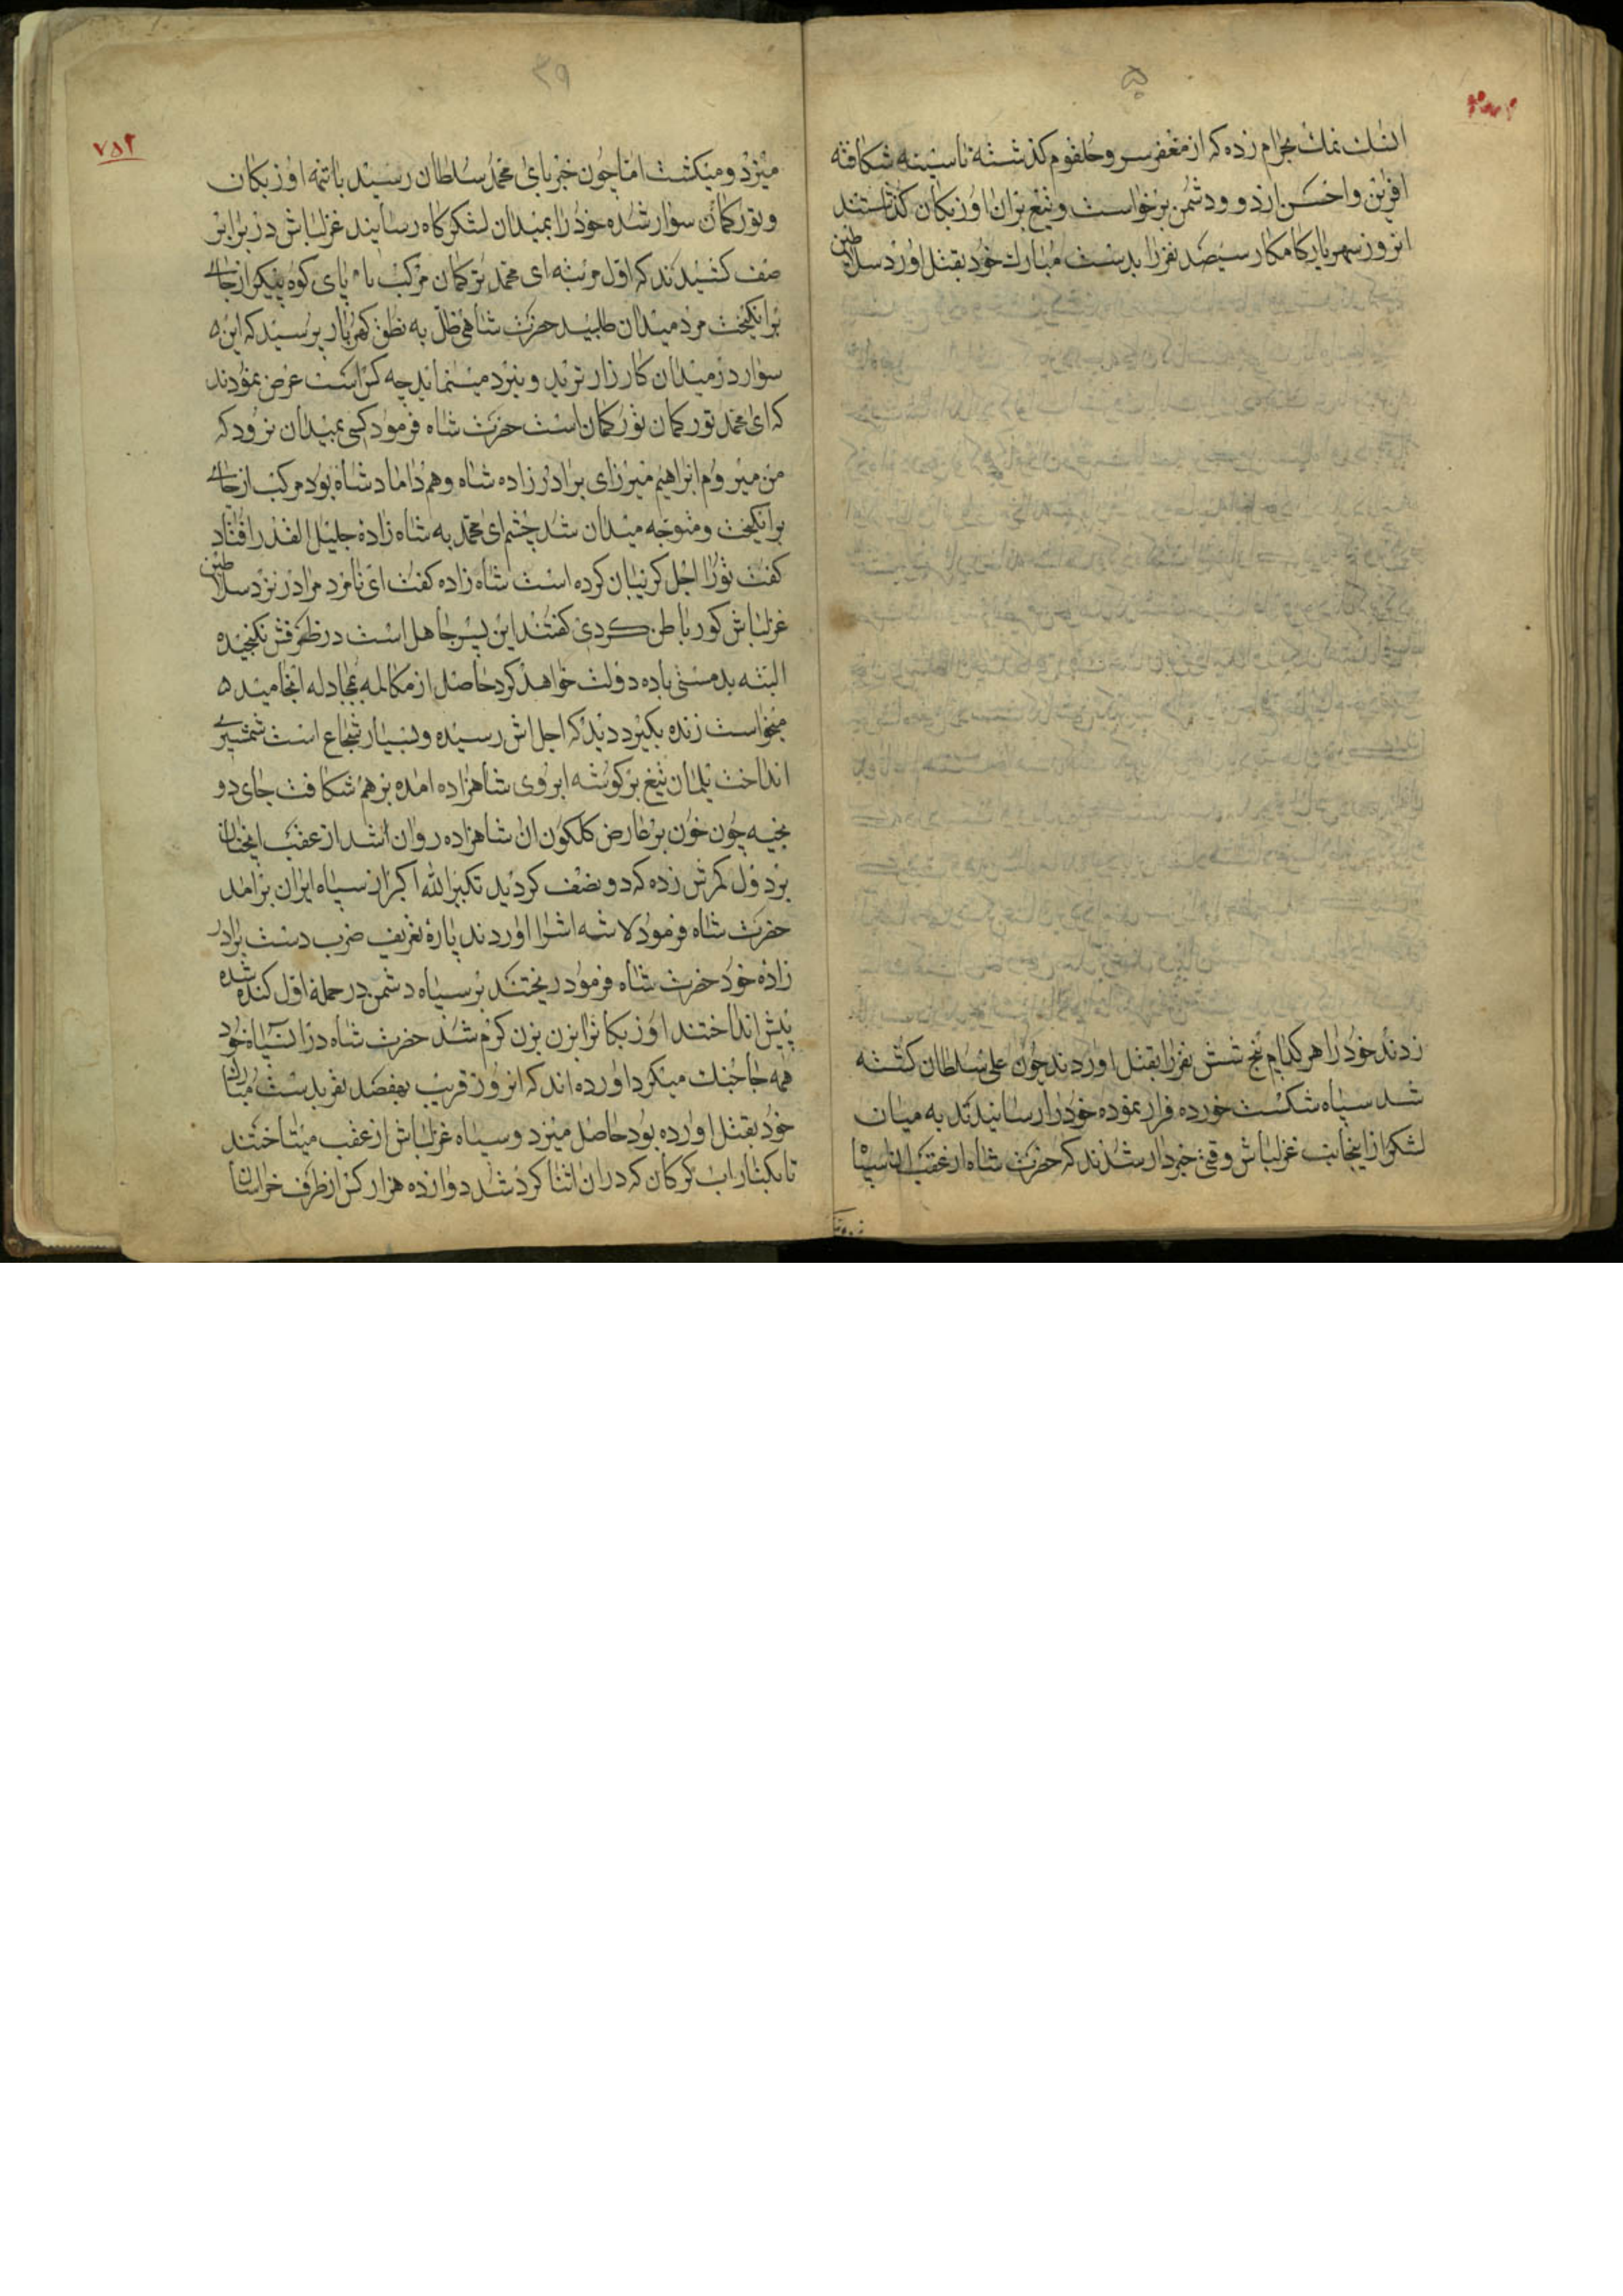 انمك بحرام زده که از مغفر سر و حلقوم کذشته تا سینه شکافته
افرین و احسن از دوود شمن برخواست و تیغ بران اوزبکان کذاشتند
انروز سهریار کامکار سیصد نفر را بدست مبارك خود بقتل اورد سلاطین
زدند خود را هر کدام پنج شش نفر را بقتل اوردند چون علی سلطان کشته
شد سپاه شکست خورده فرار نموده خود را رسانیدند به میان
لشکر از اینجانب غزلباش وقتی خبردار شدند که حضرت شاه از عقب ان سپاه
٣٩
٧٥٢
میزد و میکشت اما چون خبر بای محمد سلطان رسید با تتمه اوزبکان
و تورکمان سوار شده خود را بمیدان لشکرکاه رسانید غزلباش در برابر
صف کشیدند که اول مرتبه ای محمد ترکمان مرکب باد پای کوه پیکر از جای
برانکیخت مرد میدان طلبید حضرت شاهی ظل به نطق کهربار پرسید که این
سوار در میدان کارزار ترید و نبرد مینماید چه کس است عرض نمودند
که ای محمد تورکمان تورکمان است حضرت شاه فرمود کسی بمیدان نرود که
من میروم ابراهیم میرزای برادر زاده شاه و هم داماد شاه بود مرکب از جای
برانکیخت و متوجه میدان شد چشم ای محمد به شاه زاده جلیل القدر افتاد
کفت تورا اجل کریبان کرده است شاه زاده کفت ای نامرد مرا در نزد سلاطین
غزلباش کور باطن کردی کفتند این پسر جاهل است در ظرفش نکنجیده
البته بدمستی باده دولت خواهد کرد حاصل از مکالمه بمجادله انجامید
میخواست زنده بکیرد دید که اجل اش رسیده و بسیار شجاع است شمشیری
انداخت یلمان تیغ بر کوشه ابروی شاهزاده امده بر هم شکافت جای دو
بخیه چون خون بر عارض کلکون ان شاهزاده روان شد از عقب ایخان
بر دول کمرش زده که دو نصف کردید تکبیر الله اکبر از سپاه ایران برامد
حضرت شاه فرمود لاشه اشرا اوردند پاره تعریف ضرب دست برادر
زاده خود حضرت شاه فرمود ریختند بر سپاه دشمن در حمله اول کنده شده
پیش انداختند اوزبکانرا بزن بزن کرم شد حضرت شاه در ان سپاه خود
همه جا جنك میکرد اورده اند که انروز قریب بهفصد نفر بدست مبارك
خود بقتل اورده بود حاصل میزد و سپاه غزلباش از عقب میتاختند
تا بکنار اب کرکان که در ان اثنا کرد شد دوازده هزار کس از طرف خراسان